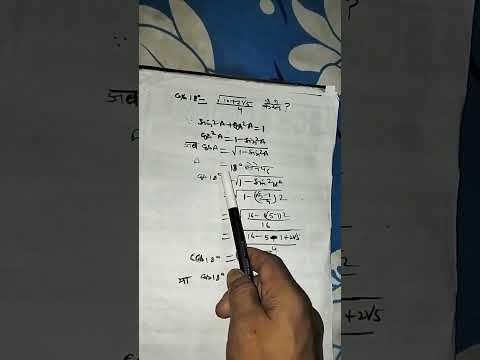 cos 18° = √10+2√5/4 कैसे ?
जब
∵ sin²A + cos²A = 1
cos²A = 1 - sin²A
जब cosA = √1-sin²A
= 18° लेने पर
cos 18° = √1-sin²18°
= √1-(√5-1/4)2
= √16-(√5-1)²/16
= √16-5-1+2√5/4
cos 18° =
या cos 18° = +2√5